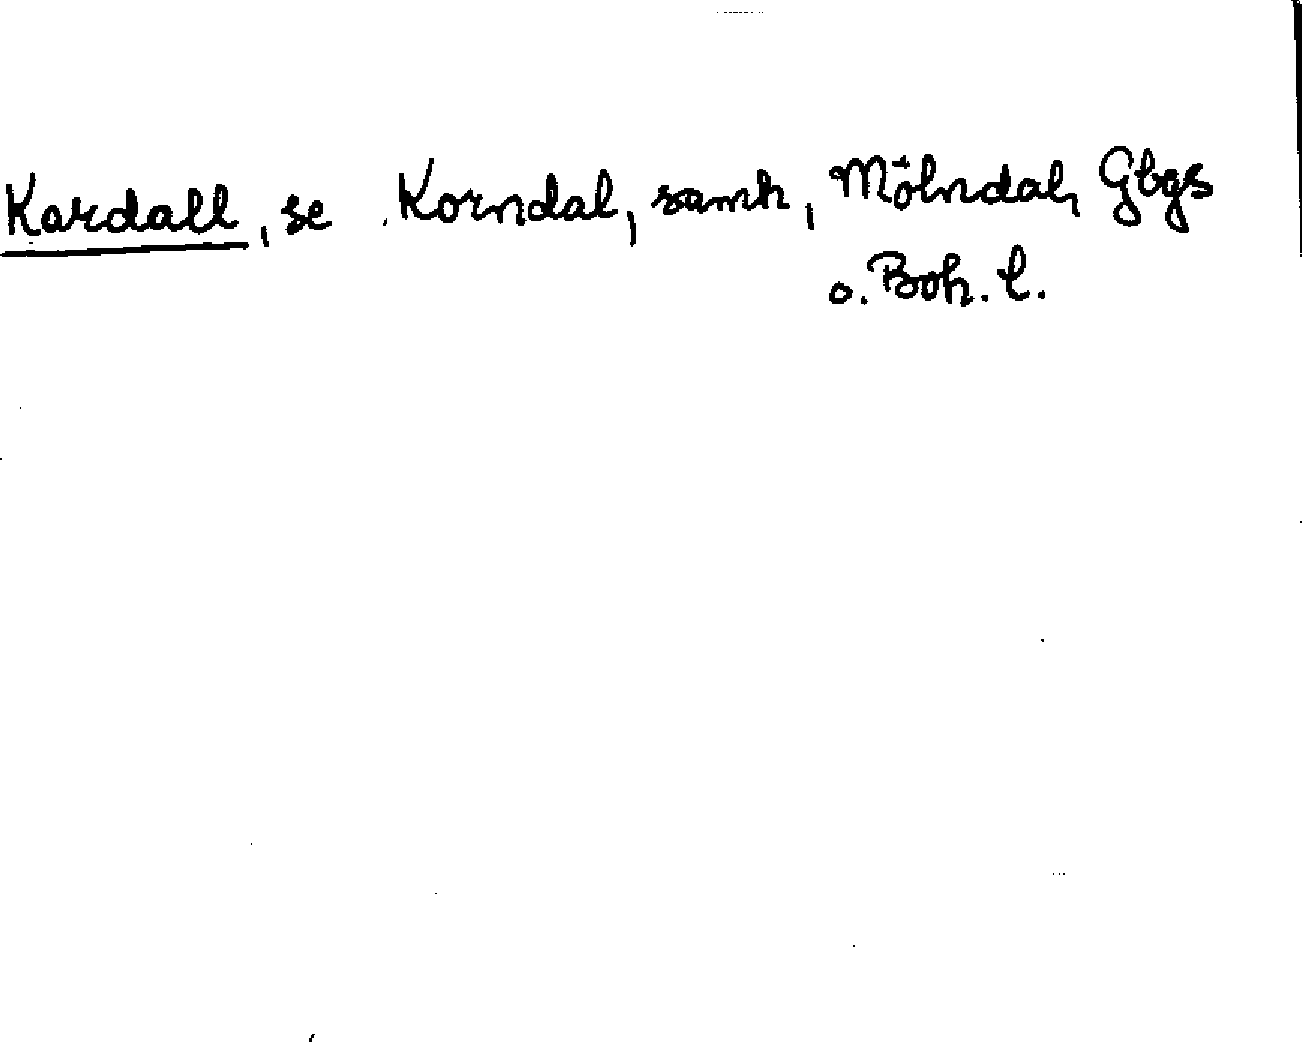 Kardall, se Korndal, samh, Mölndal, Gbgs
o. Boh. l.